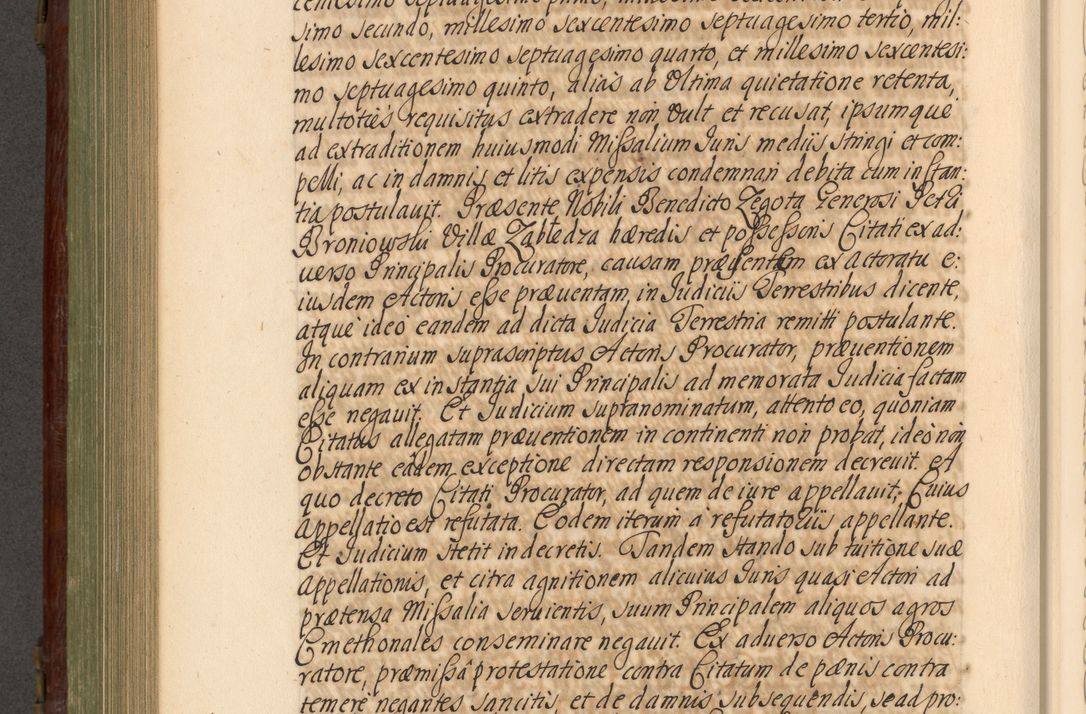 centesimo septuagesimo primo, millesimo
simo secundo, millesimo sexcentesimo septuagesimo tertio, mil:
lesimo sexcentesimo septuagesimo quarto, et millesimo sexcentesi:
mo septuagesimo quinto, alias ab Ultima quietatione retenta,
multoties requisitus extradere non vult et recusat, ipsumque
ad extraditionem huiusmodi Missalium Iuris mediis stringi et com:
pelli, ac in damnis et litis expensis condemnari debita cum instan:
tia postulavit. Præsente Nobili Benedicto Zegota Generosi Petri
Broniowski Villæ Zabłedza hæredis et possessoris Citati ex ad:
uerso Principalis Procuratore, causam præventam ex actoratu e:
iusdem Actoris esse præuentam, in Iudiciis Terrestribus dicente,
atque ideo eandem ad dicta Iudicia Terrestria remitti postulante.
In contrarium suprascriptus Actoris Procurator, præuentionem
aliquam ex instantia sui Principalis ad memorata Iudicia factam
esse negauit. Et Iudicium supranominatum, attento eo, quoniam
Citatus allegatam præuentionem in continenti non probat, ideo non
obstante eadem exceptione directam responsionem decreuit. A
quo decreto Citati Procurator, ad quem de iure appellauit; Cuius
Appellatio est refutata. Eodem iterum a refutatoriis appellante.
Et Iudicium stetit in decretis. Tandem stando sub tuitione suæ
Appellationis, et citra agnitionem alicuius Iuris quasi Actori ad
prætensa Missalia seruientis, suum Principalem aliquos agros
Cmethonales conseminare negauit. Ex aduerso Actoris Procu:
ratore, præmissa protestatione contra Citatum de pœnis contra
temere negantes sancitis, et de damnis subsequendis, se ad pro: